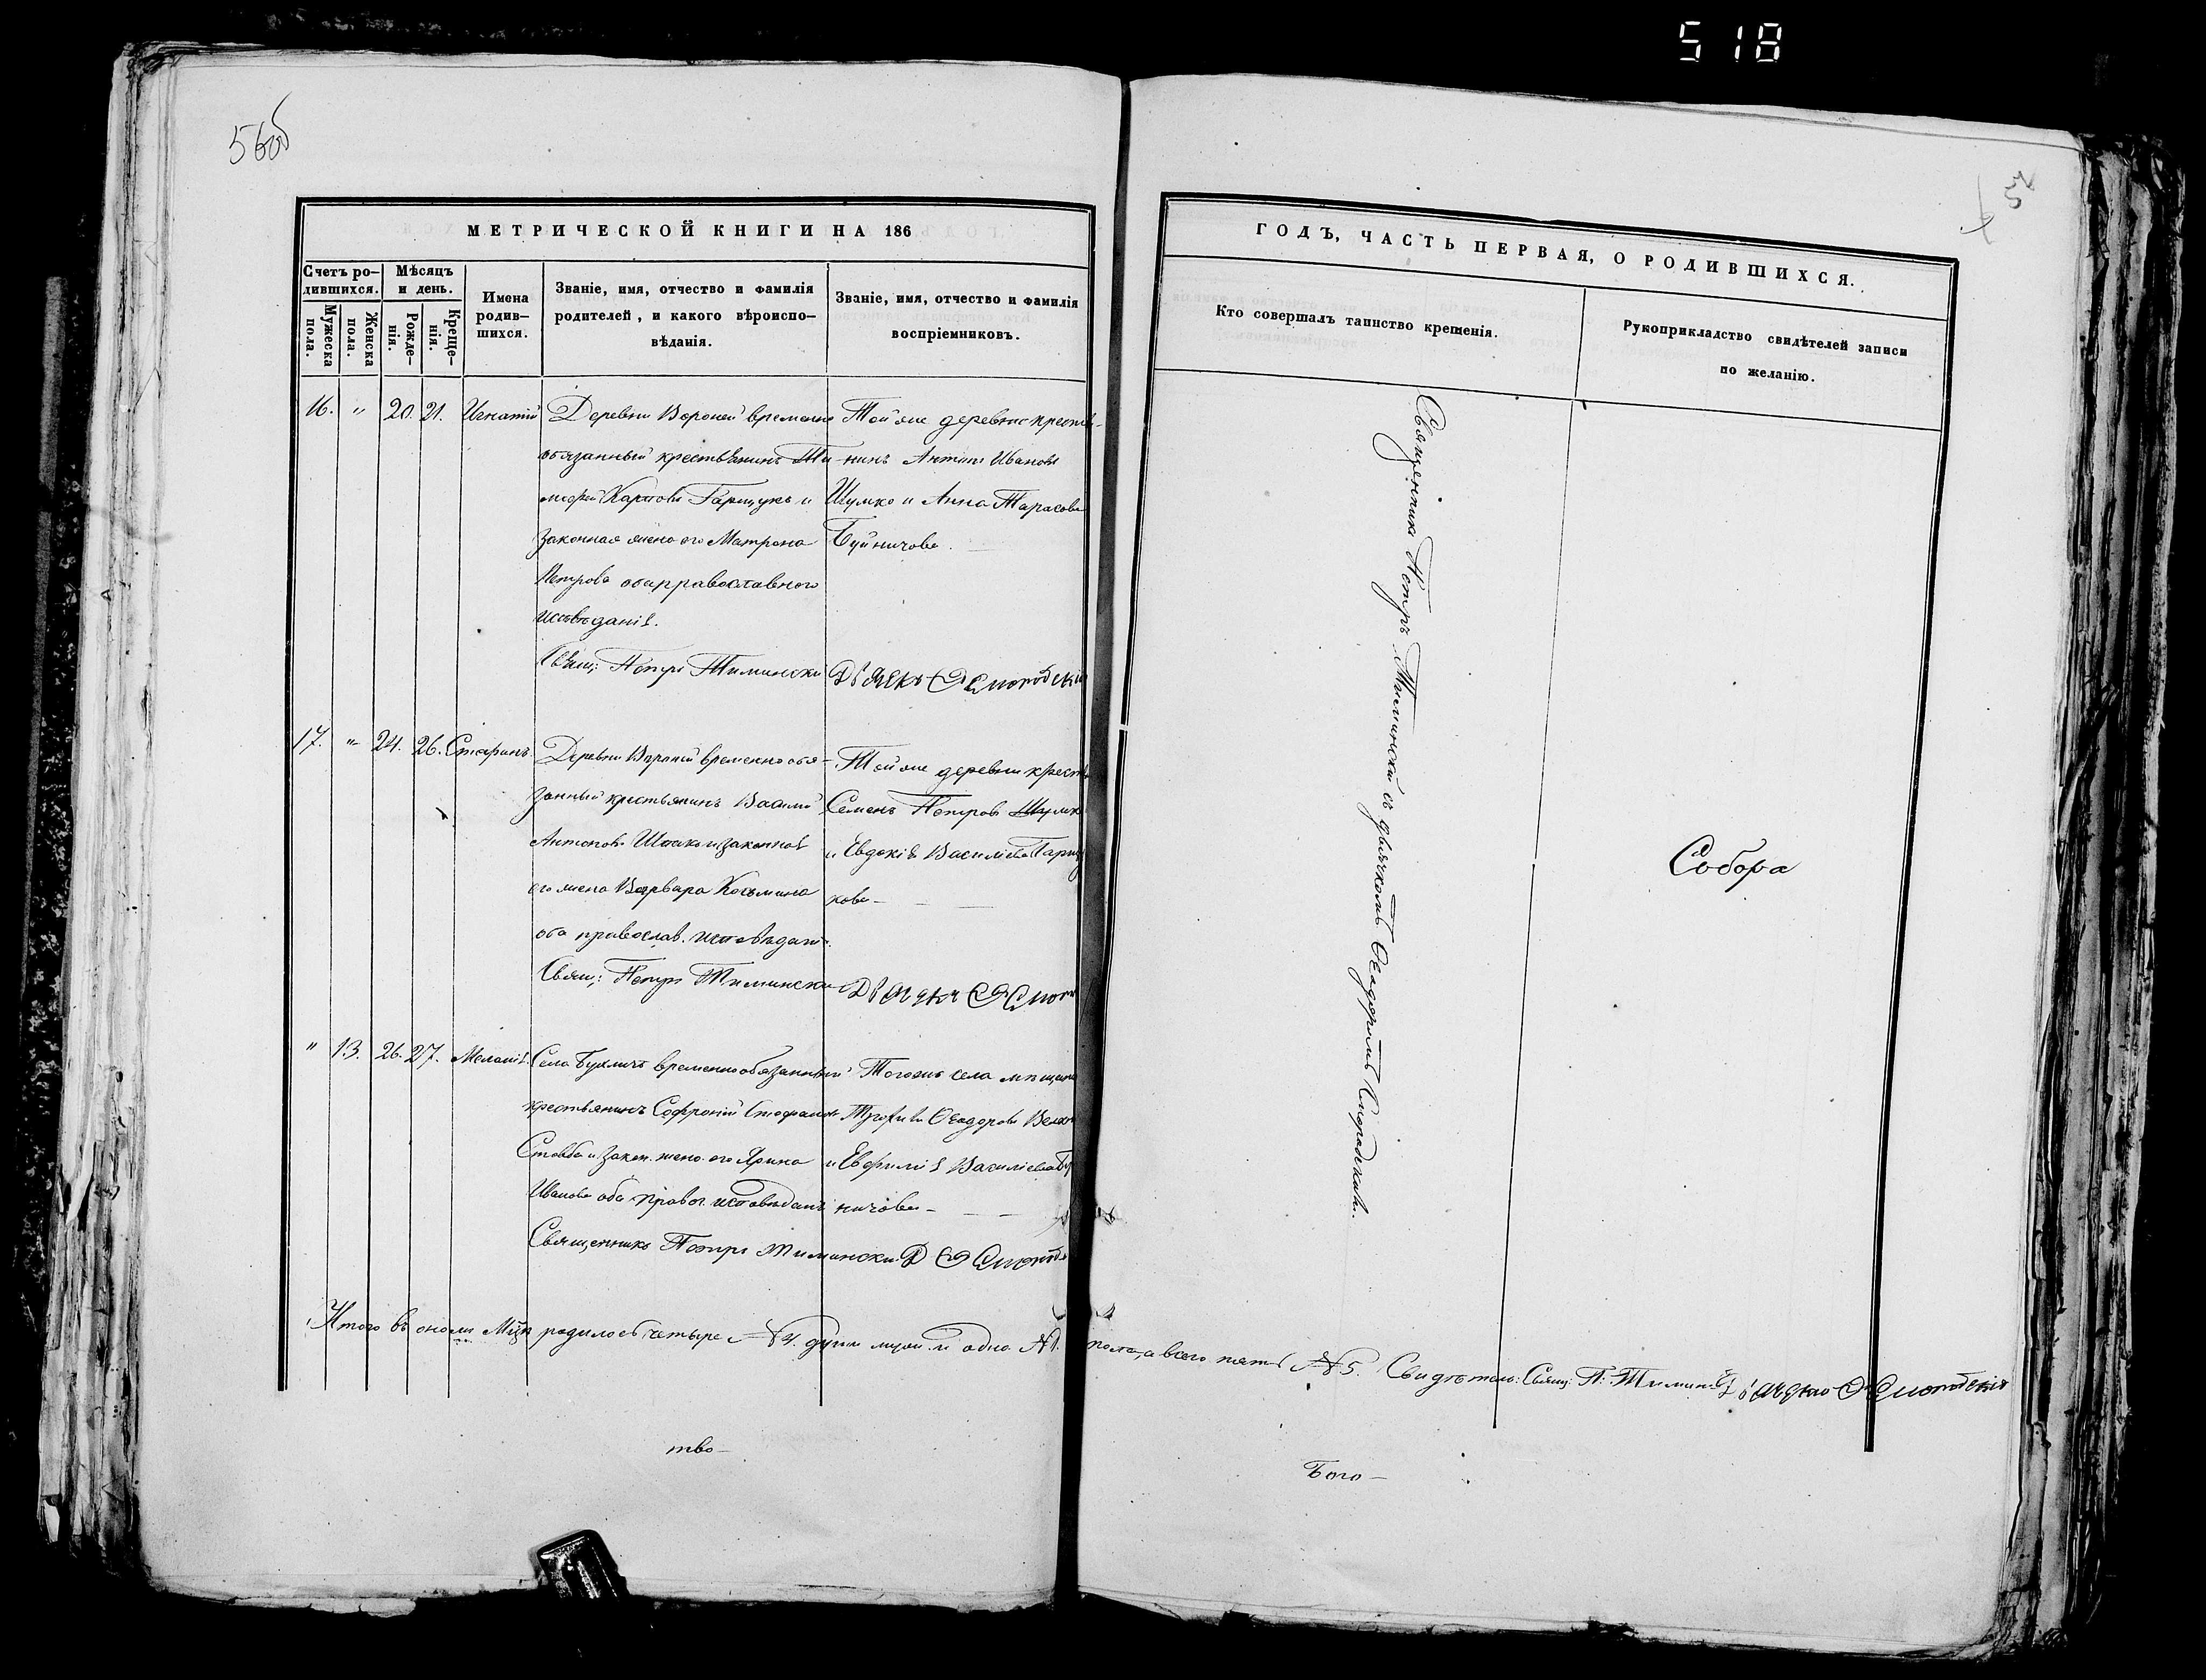 518
56об
5
МЕТРИЧЕСКОЙ КНИГИ НА 186
Счетъ ро-
дившихся.
Мужеска
пола.
Женска
пола.
Мѣсяцъ
и день.
Рожде-
нія.
Креще-
нія.
Имена
родив-
шихся.
Званіе, имя, отчество и фамилія
родителей, и какого вѣроиспо-
вѣданія.
Званіе, имя, отчество и фамилія
воспріемниковъ.
16. " 20. 21. Игнатій
Деревни Вороней временно
обязанный крестьянинъ Ти
мофей Карповъ Гарщукъ и
законная жена его Матрона
Петрова оба православнаго
исповѣданія.
Свящ: Петръ Тимински
Той же деревни крестья-
нинъ Антонъ Ивановъ
Шумко и Анна Тарасова
Буйничова.
Дьячекъ Ѳ Смородскій
17. " 24. 26.
Деревни Вороней временно обя-
занный крестьянинъ Василій
Антоновъ и законная
его жена Варвара Косьмина
оба православ. исповѣдані
Свящ: Петръ Тимински
Той же деревни крестья
Семенъ Петровъ Шумк
и Евдокія Васильева Гарщу
кова
Дьячекъ Ѳ Смор
" 13. 26. 27. Меланія.
Села временнообязанный
крестьянинъ Софроній
и закон. жена его Ярина
Иванова оба правос. исповѣдані
Священникъ Петръ Тимински
Тогожъ села мѣщани
Ѳеодоровъ
и Евфимія Васильева Бу
ничова
Д Ѳ Смород
Итого въ ономъ Мцѣ родилось четыре №4. души муж. и одна №1. пола, а всего пять №5. Свидѣтель: Свящ: П: Тимин. Дьячекъ Ѳ Смородскій
тво-
ГОДЪ, ЧАСТЬ ПЕРВАЯ, О РОДИВШИХСЯ.
Кто совершалъ таинство крещенія.
Рукоприкладство свидѣтелей записи
по желанію.
Священникъ Петръ Тиминскій съ дьячкомъ Ѳеодоромъ Смородскимъ.
Собора
Бого-